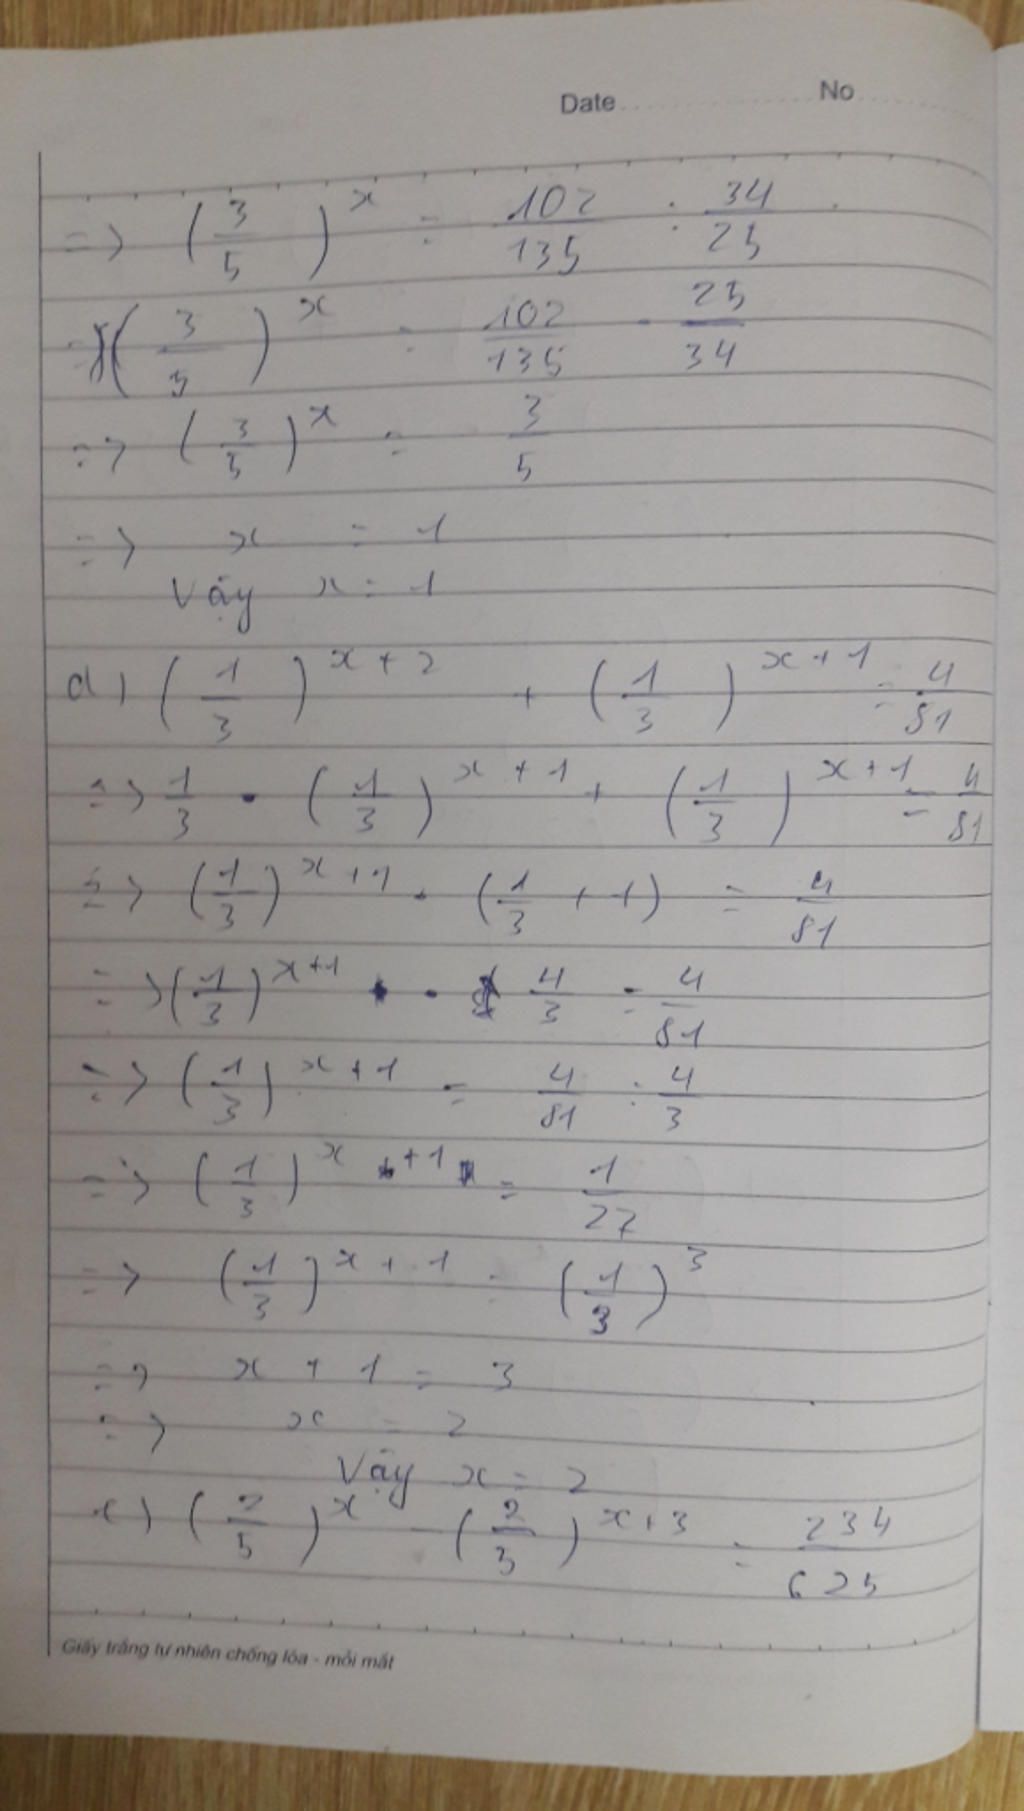 Date No
=> (3/5)^x = 102/135 : 34/25
=> (3/5)^x = 102/135 . 25/34
=> (3/5)^x = 3/5
=> x = 1
Vậy x = 1
d) (1/3)^x+2 + (1/3)^x+1 = 4/81
=> 1/3 . (1/3)^x+1 + (1/3)^x+1 = 4/81
=> (1/3)^x+1 . (1/3 + 1) = 4/81
=> (1/3)^x+1 . 4/3 = 4/81
=> (1/3)^x+1 = 4/81 : 4/3
=> (1/3)^x+1 = 1/27
=> (1/3)^x+1 = (1/3)^3
=> x + 1 = 3
=> x = 2
Vậy x = 2
(2/5)^x - (2/5)^x+3 = 234/625
Giấy trắng tự nhiên chống lóa - mỏi mắt